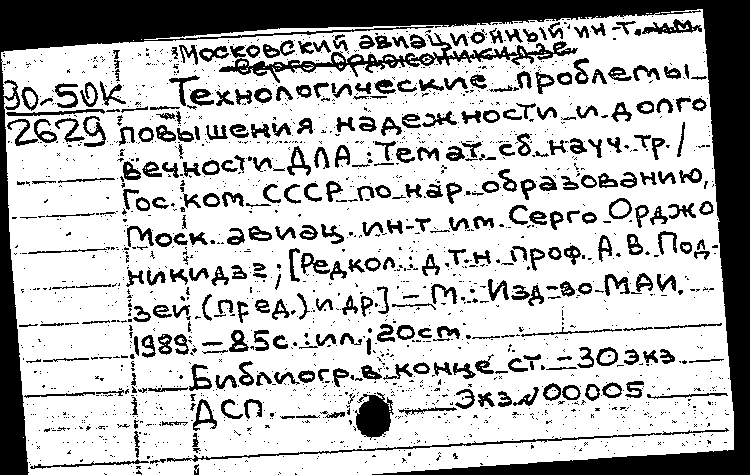 Московский авиационный ин-т. им.
Серго Орджоникидзе
90-50К Технологические проблемы
2629 повышения надежности и долго
вечности ДЛА : Темат. сб. науч. тр. /
Гос. ком. СССР по нар. образованию,
Моск. авиац. ин-т им. Серго Орджо
никидзе ; [Редкол.: д.т.н. проф. А. В. Под-
зей (пред.) и др.] – М. : Изд-во МАИ,
1989. – 85с. : ил. ; 20cm.
Библиогр. в конце ст. – 30 экз
ДСП. Экз. N 00005.